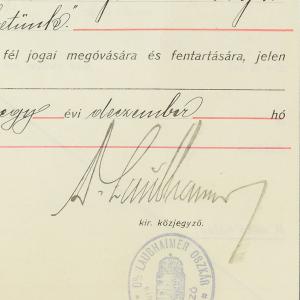 etünk."
fél jogai megóvására és fentartására, jelen
egy évi deczember hó
Dr. Laubhaimer
kir. közjegyző.
DR LAUBHAIMER OSZKÁR